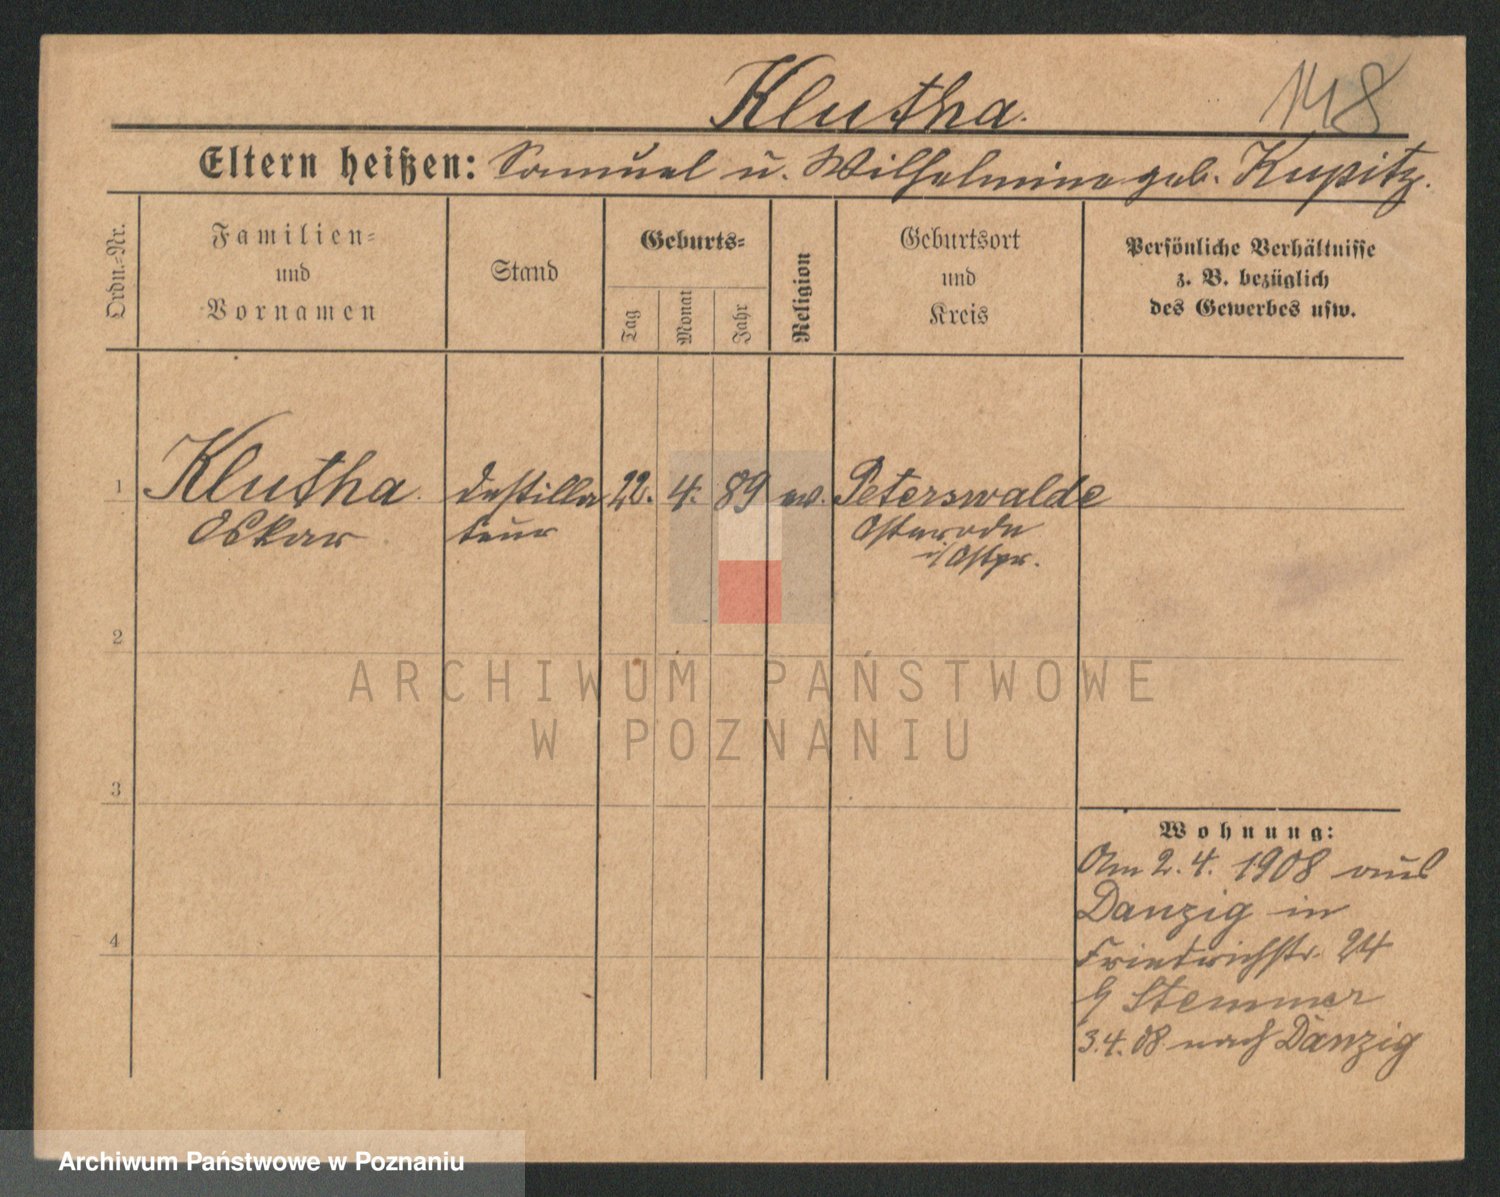 Klutha.
148
Eltern heißen: Samuel u. Wilhelmine geb. Kupitz.
Ordn.-Nr.
Familien-
und
Vornamen
Stand
Geburts-
Tag
Monat
Jahr
Religion
Geburtsort
und
Kreis
Persönliche Verhältnisse
z. B. bezüglich
des Gewerbes usw.
1 Klutha destilla 22. 4. 89 ev. Peterswalde
Oskar teur Osterode
i/Ostpr.
2
ARCHIWUM PAŃSTWOWE
W POZNANIU
3
Wohnung:
Am 2. 4. 1908 aus
Danzig in
4
Friedrichstr. 24
Stemmer
3. 4. 08 nach Danzig
Archiwum Państwowe w Poznaniu